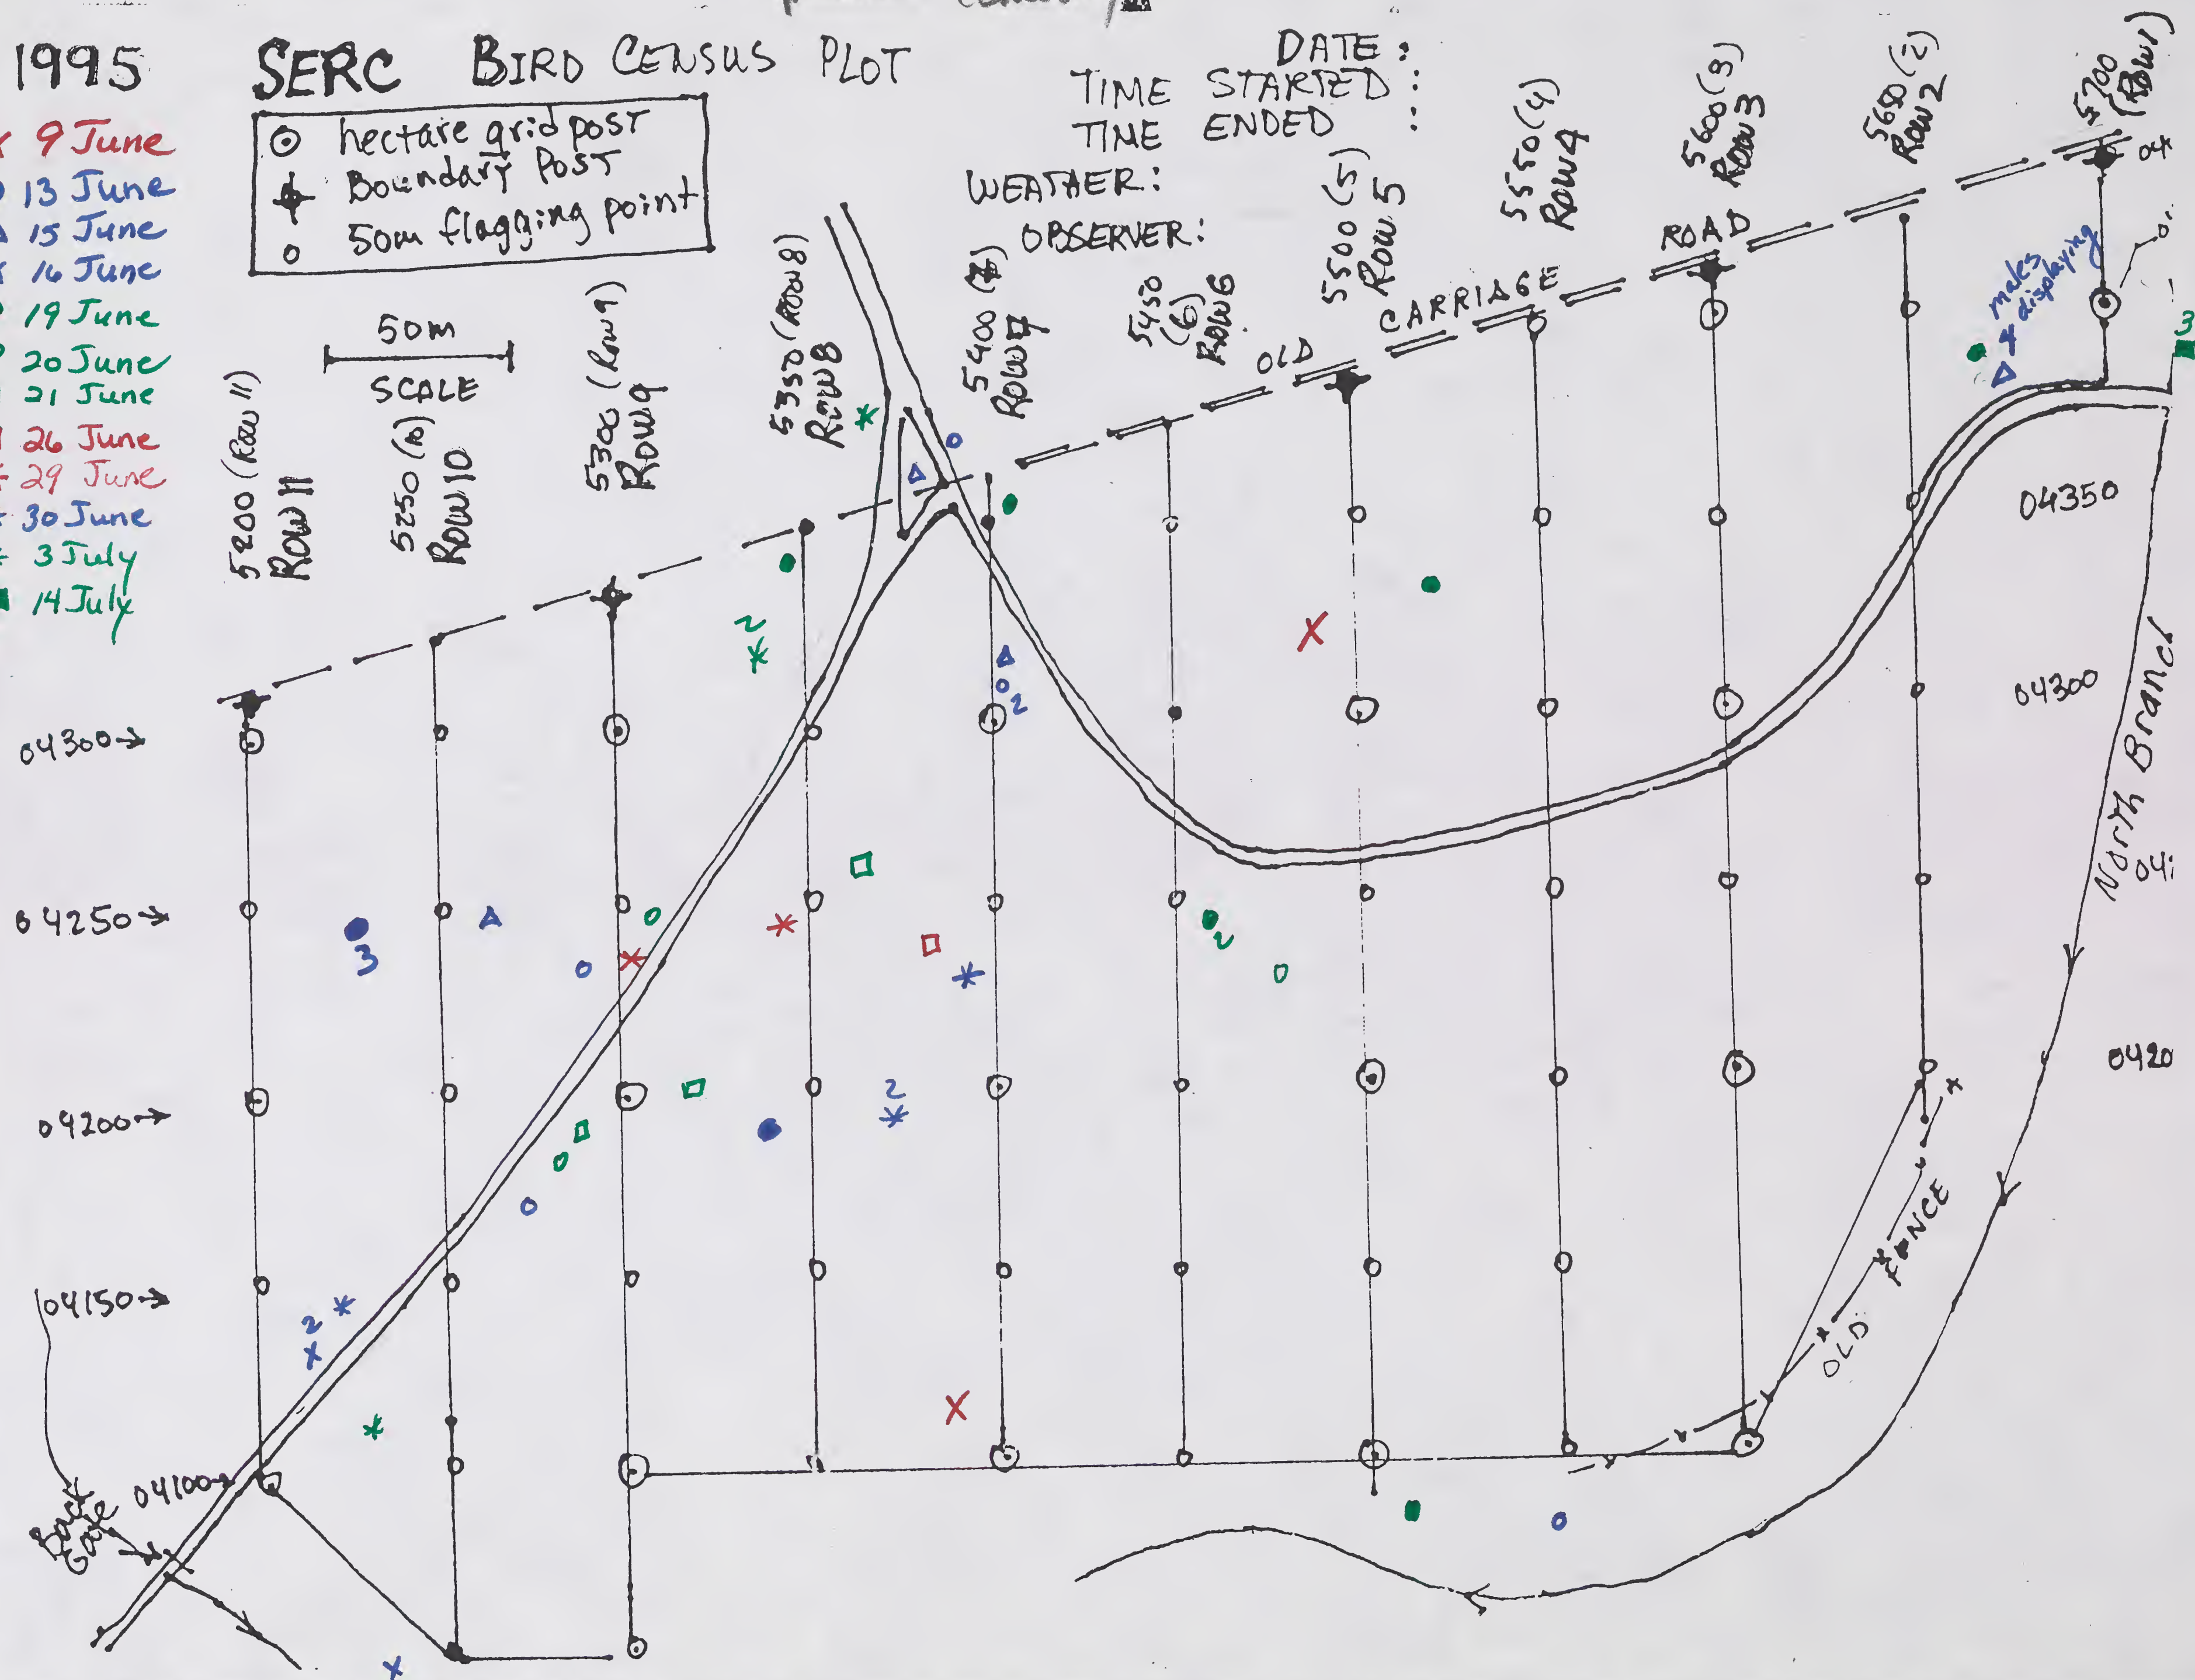 1995
SERC BIRD CENSUS PLOT
DATE :
TIME STARTED :
TIME ENDED :
WEATHER:
OBSERVER:
hectare grid post
Boundary Post
50m flagging point
9 June
13 June
15 June
16 June
19 June
20 June
21 June
26 June
29 June
30 June
3 July
14 July
50m
SCALE
5200 (Row 11)
ROW 11
5250 (10)
ROW 10
5300 (Row 9)
ROW 9
5350 (Row 8)
ROW 8
5400
ROW 7
5450
(6)
ROW 6
5500 (5)
ROW 5
5550 (4)
ROW 4
5600 (3)
ROW 3
5650 (2)
ROW 2
5700
(ROW 1)
OLD CARRIAGE ROAD
males
displaying
3
2
2
3
2
2
2
04350
04300
0420
North Branch
04300→
04250→
04200→
04150→
04100→
Back
Gate
OLD FENCE